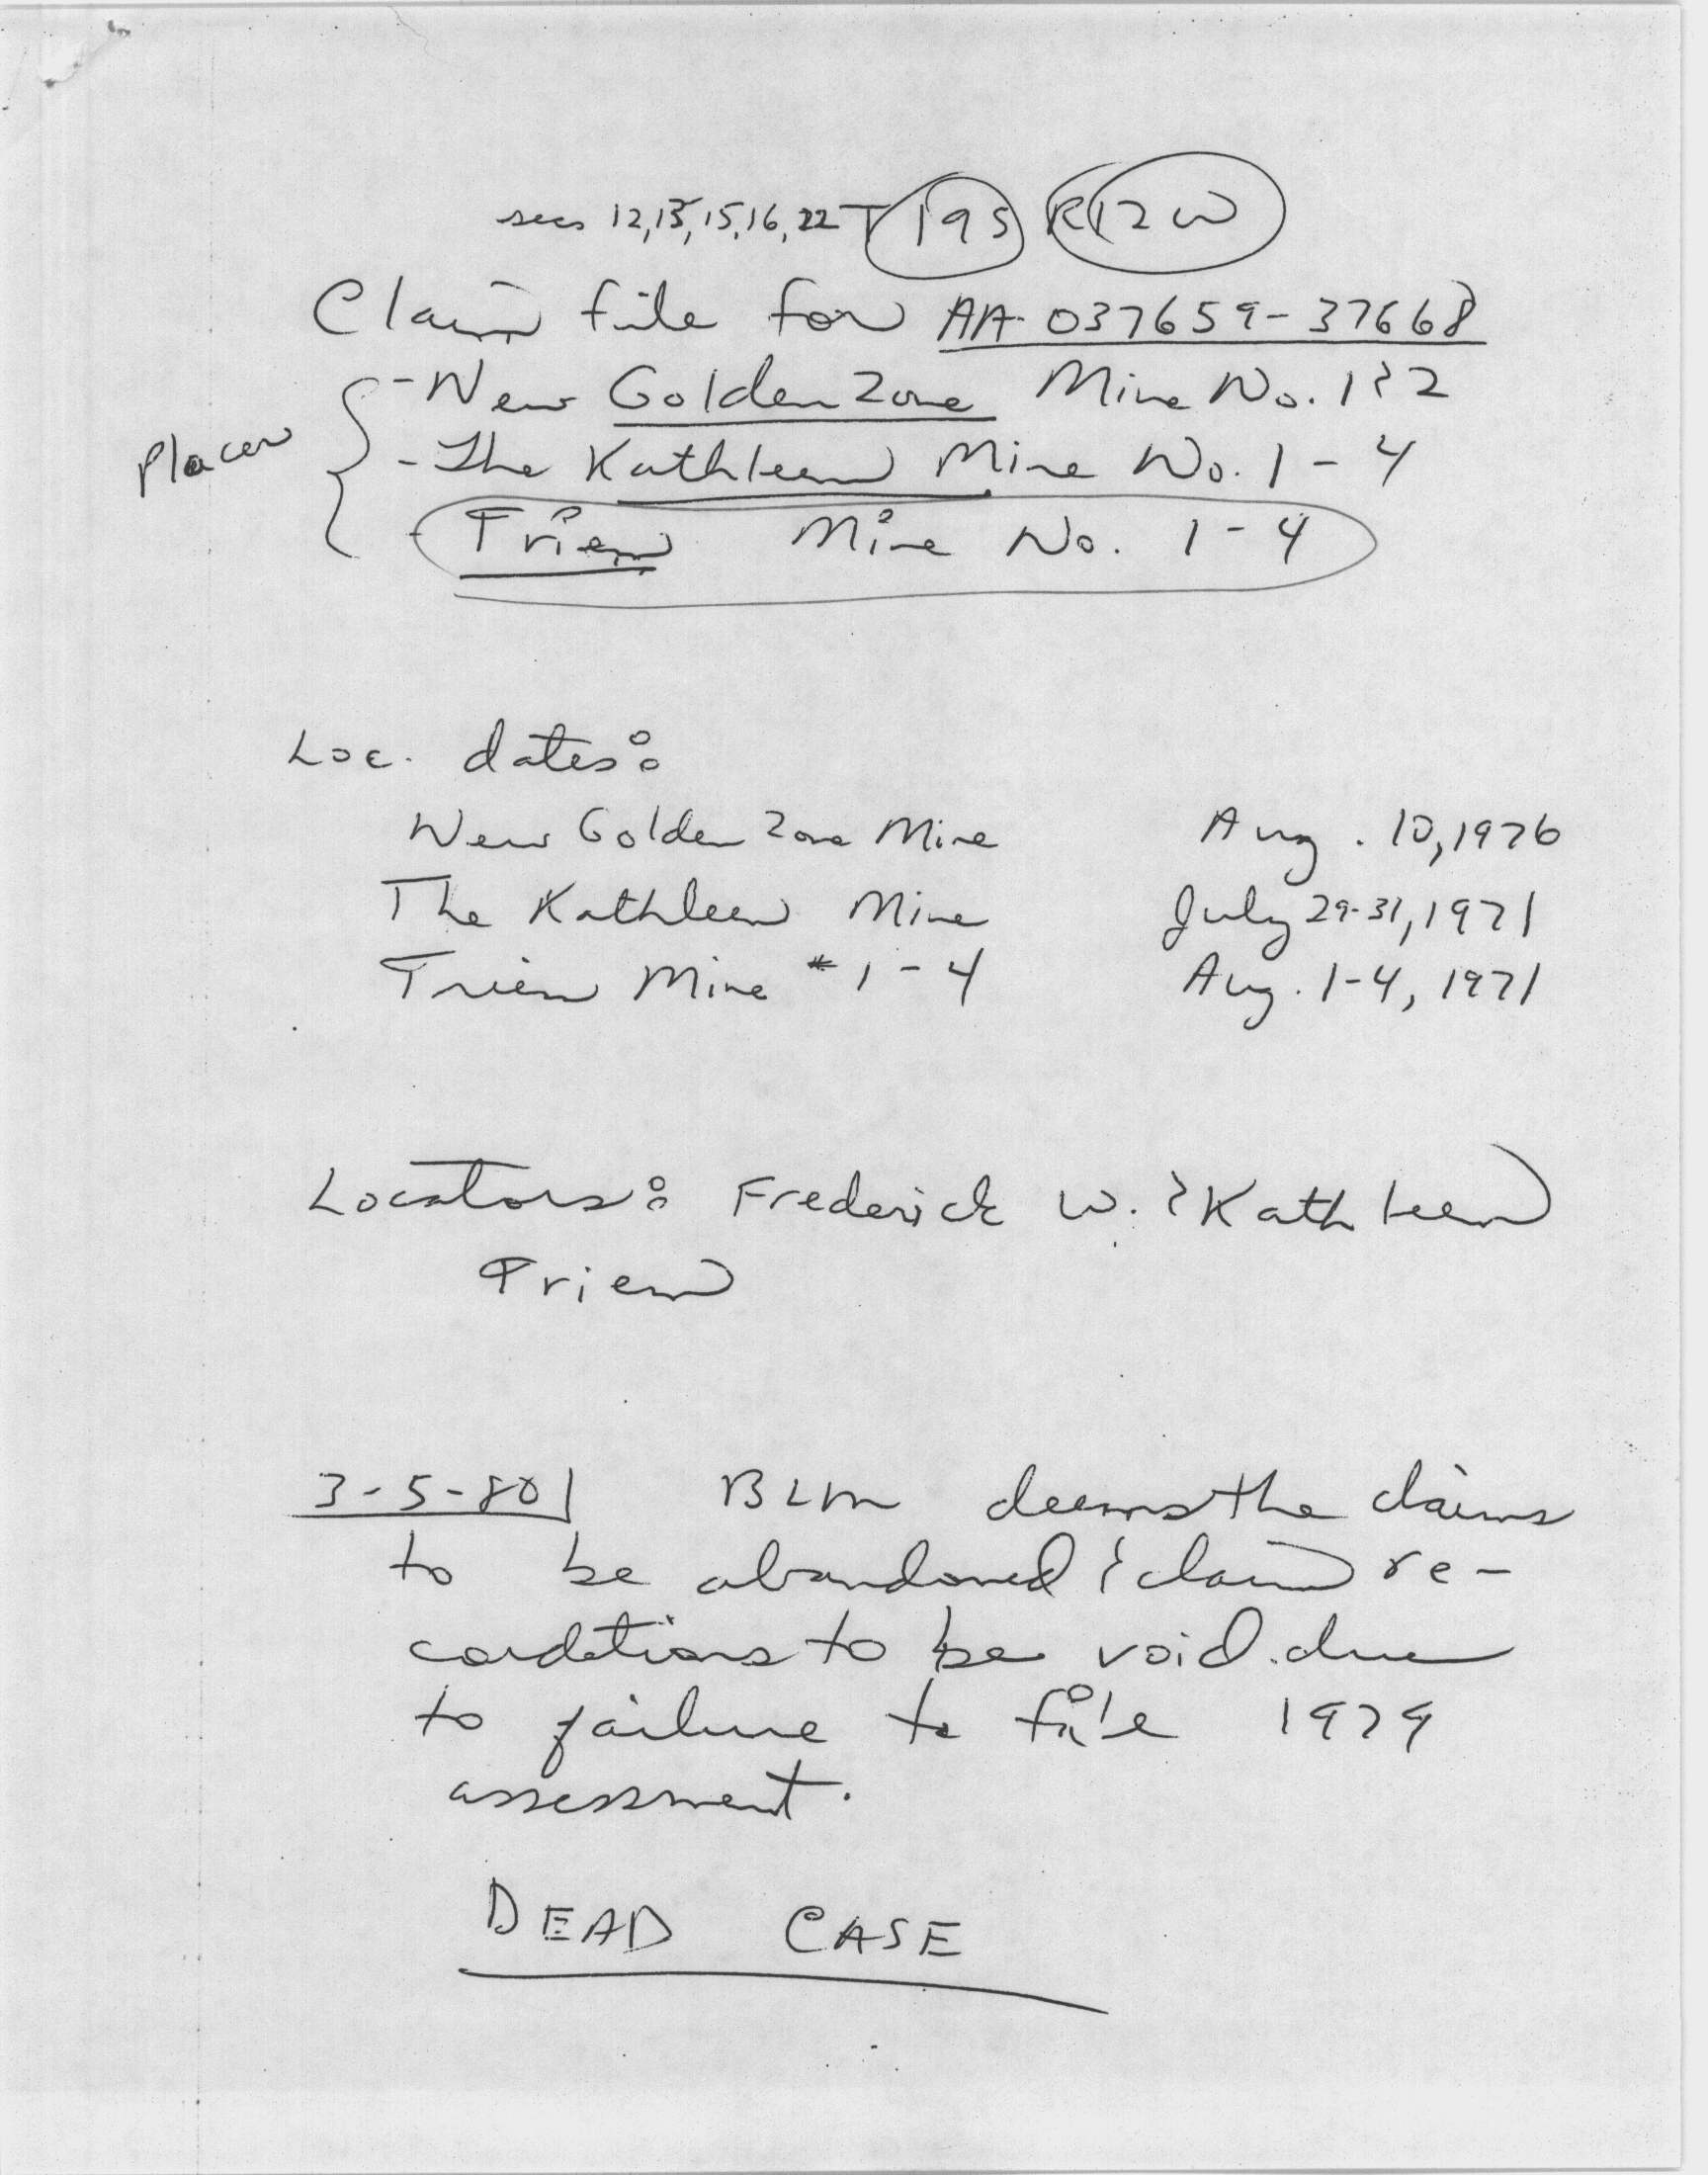 secs 12,13,15,16,22 T 19S R12W
Claim file for AA-037659-37668
Placer
- New Golden Zone Mine No. 1 & 2
- The Kathleen Mine No. 1 - 4
- Trien Mine No. 1 - 4
Loc. dates:
New Golden Zone Mine Aug. 10, 1976
The Kathleen Mine July 29-31, 1971
Trien Mine # 1 - 4 Aug. 1-4, 1971
Locators: Frederick W. & Kathleen
Trien
3-5-80 BLM deems the claims
to be abandoned & claim re-
cordations to be void due
to failure to file 1979
assessment.
DEAD CASE